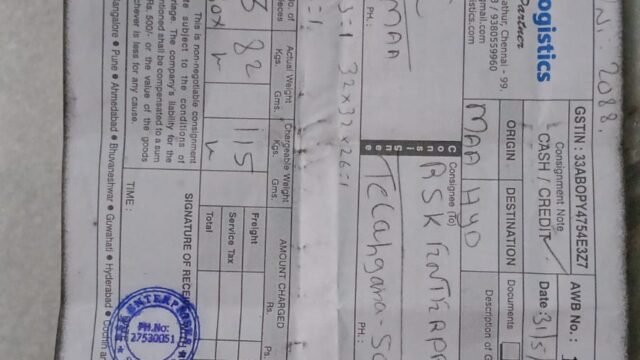 2088.
GSTIN : 33ABOPY4754E3Z7
Consignment Note
AWB No. :
CASH / CREDIT
Date
ORIGIN
DESTINATION
Documents
MAA
HYD
Description of
ogistics
Partner
athur, Chennai - 99.
/ 9380559960
gmail.com
stics.com
Consignee (To)
RSK ENTERPR
Telangana
PH.:
MAA
PH.:
32x32x26=1
=1
No. of
ieces
Actual Weight
Kgs. Gms.
Chargeable Weight
Kgs. Gms.
AMOUNT CHARGED
Rs. Ps.
82
115
Freight
Service Tax
Total
This is non-negotiable consignment
te subject to the conditions of
rriage. The company's liability for the
ntioned shall be compensated to a sum
Rs. 500/- or the value of the goods
chever is less for any cause.
SIGNATURE OF RECE
TIME :
ENTERPRISES
PH.No:
27530051
Mangalore • Pune • Ahmedabad • Bhuvaneshwar • Guwahati • Hyderabad • Cochin an